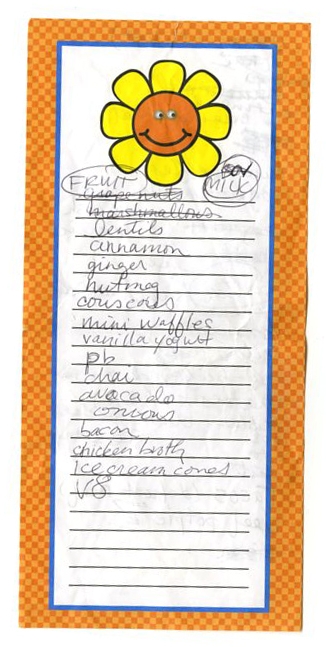 FRUIT
soy
MILK
grapenuts
marshmallows
lentils
cinnamon
ginger
nutmeg
couscous
mini waffles
vanilla yogurt
pb
chai
avocado
bacon
chicken broth
ice cream cones
V8